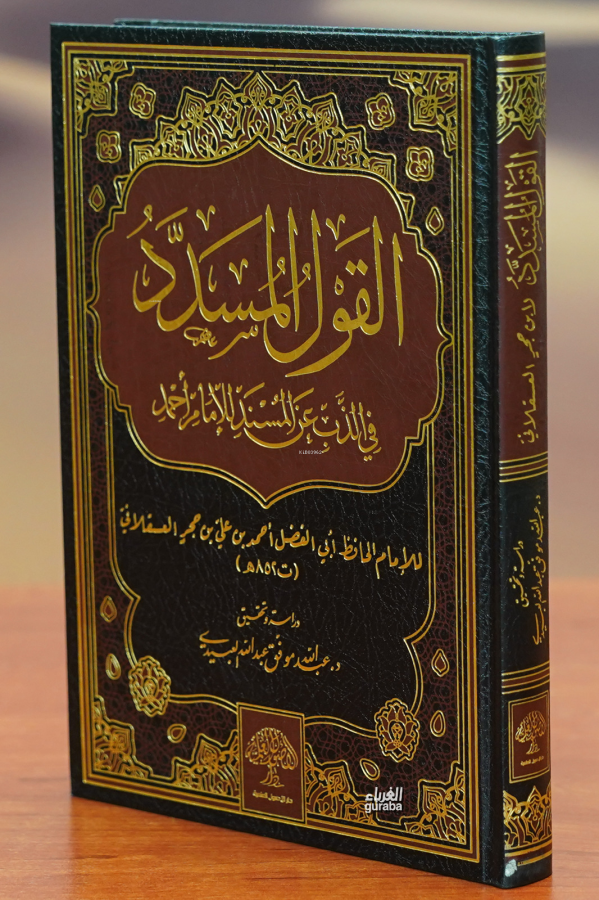 القَوْلُ المُسَدَّدُ
في الذَّبِّ عَنِ المُسْنَدِ للإمَامِ أحْمَد
للإمام الحافظ أبي الفضل أحمد بن علي بن حجر العسقلاني
(ت ٨٥٢هـ)
دراسة وتحقيق
د. عبدالله موفق عبدالله لعبيدي
الغرباء
guraba
القول المسدد
لابن حجر العسقلاني
دراسة وتحقيق